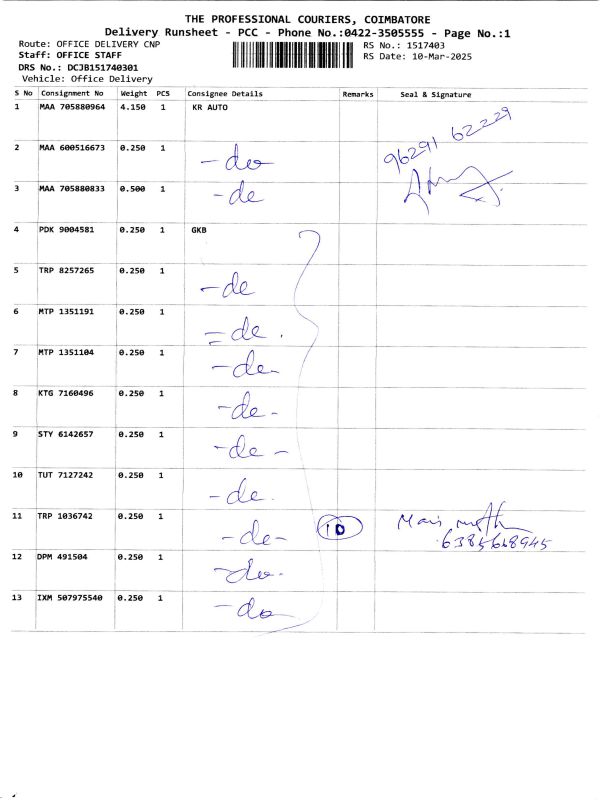 THE PROFESSIONAL COURIERS, COIMBATORE
Delivery Runsheet - PCC - Phone No.:0422-3505555 - Page No.:1
Route: OFFICE DELIVERY CNP RS No.: 1517403
Staff: OFFICE STAFF RS Date: 10-Mar-2025
DRS No.: DCJB151740301
Vehicle: Office Delivery
S No Consignment No Weight PCS Consignee Details Remarks Seal & Signature
1 MAA 705880964 4.150 1 KR AUTO
96291 62229
2 MAA 600516673 0.250 1 -do
3 MAA 705880833 0.500 1 -de
4 PDK 9004581 0.250 1 GKB
5 TRP 8257265 0.250 1 -de
6 MTP 1351191 0.250 1 =de .
7 MTP 1351104 0.250 1 -de-
8 KTG 7160496 0.250 1 -de-
9 STY 6142657 0.250 1 -de -
10 TUT 7127242 0.250 1 -de.
11 TRP 1036742 0.250 1 -de- 10
12 DPM 491504 0.250 1 -do-
13 IXM 507975540 0.250 1 -do